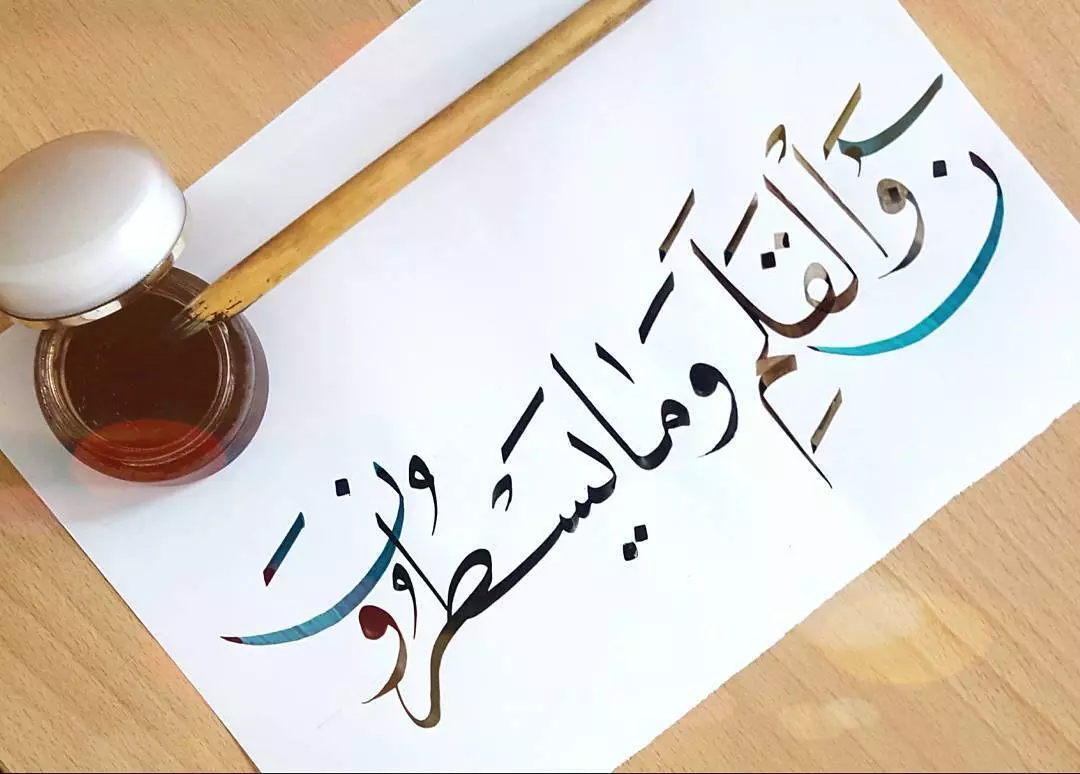 نٓ وَٱلْقَلَمِ وَمَا يَسْطُرُونَ